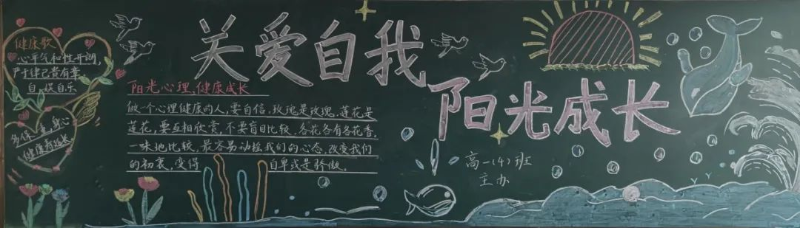 关爱自我
阳光成长
健康歌
心平气和性开朗
严于律己责有靠
自娱自乐
身心
健康
阳光心理,健康成长
做一个心理健康的人,要自信,玫瑰是玫瑰,莲花是
莲花,要互相欣赏,不要盲目比较,各花各有各花香,
一味地比较,最容易动摇我们的心态,改变我们
的初衷,变得
自卑或是骄傲。
高一(4)班
主办